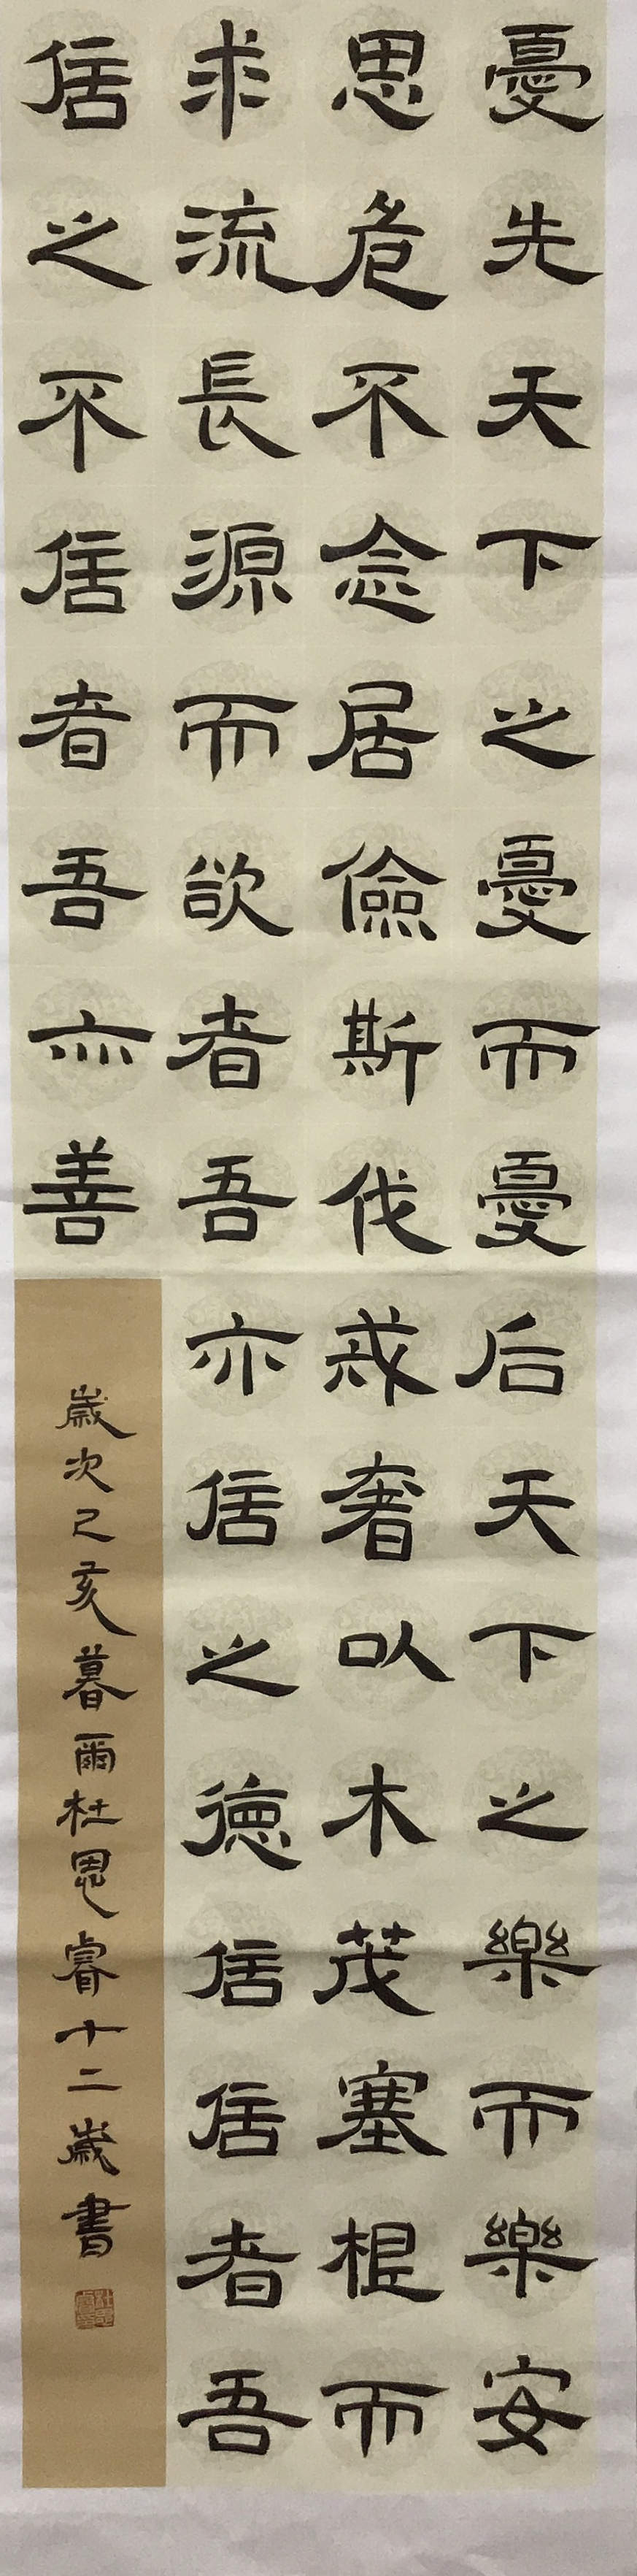 憂先天下之憂而憂后天下之樂而樂安
思危不念居儉斯伐戒奢以木茂塞根而
求流長源而欲者吾亦信之德信信者吾
信之不信者吾亦善
歲次己亥暮爾杜思睿十二歲書